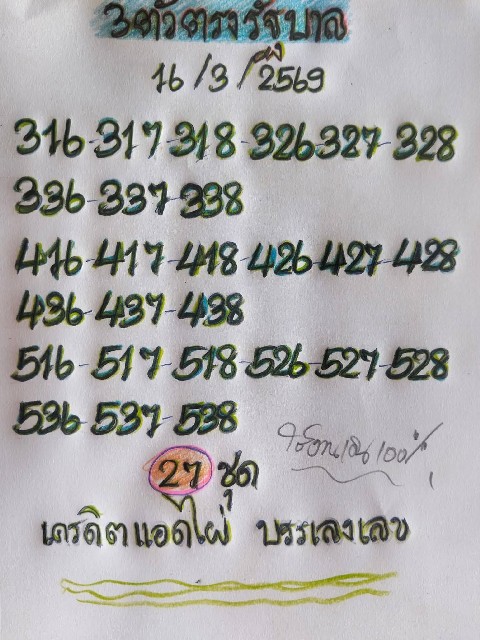 3ตัวตรงรัฐบาล
16/3/2569
316-317-318-326-327-328
336-337-338
416-417-418-426-427-428
436-437-438
516-517-518-526-527-528
536-537-538
100%
27 ชุด
เครดิตแอดไผ่ บรรเลงเลข